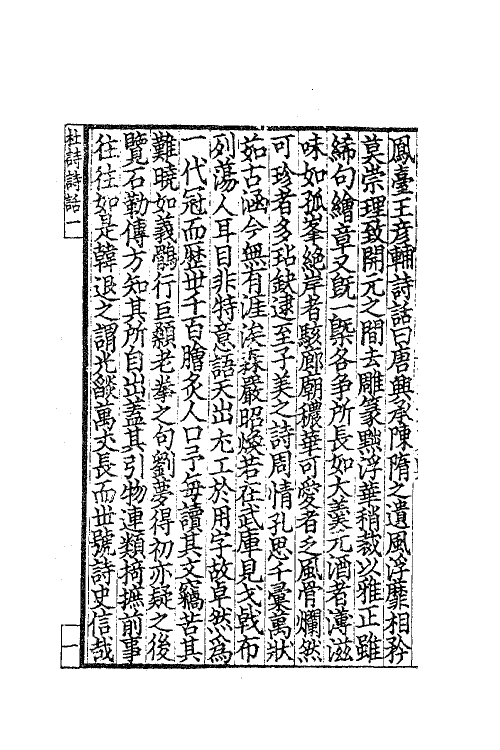 鳳臺王彥輔詩話曰唐興承陳隋之遺風浮靡相矜
莫崇理致開元之間去雕篆黜浮華稍裁以雅正雖
絺句繪章又旣一槩各爭所長如大羹元酒者薄滋
味如孤峯絕岸者駭廊廟穠華可愛者乏風骨爛然
可珍者多玷缺逮至子美之詩周情孔思千彙萬狀
茹古涵今無有涯涘森嚴昭煥若在武庫見戈戟布
列蕩人耳目非特意語天出尤工於用字故卓然為
一代冠而歷世千百膾炙人口予每讀其文竊苦其
難曉如義鶻行巨顙老拳之句劉夢得初亦疑之後
覽石勒傳方知其所自出蓋其引物連類摘摭前事
往往如是韓退之謂光燄萬丈長而世號詩史信哉
杜詩詩話一
一